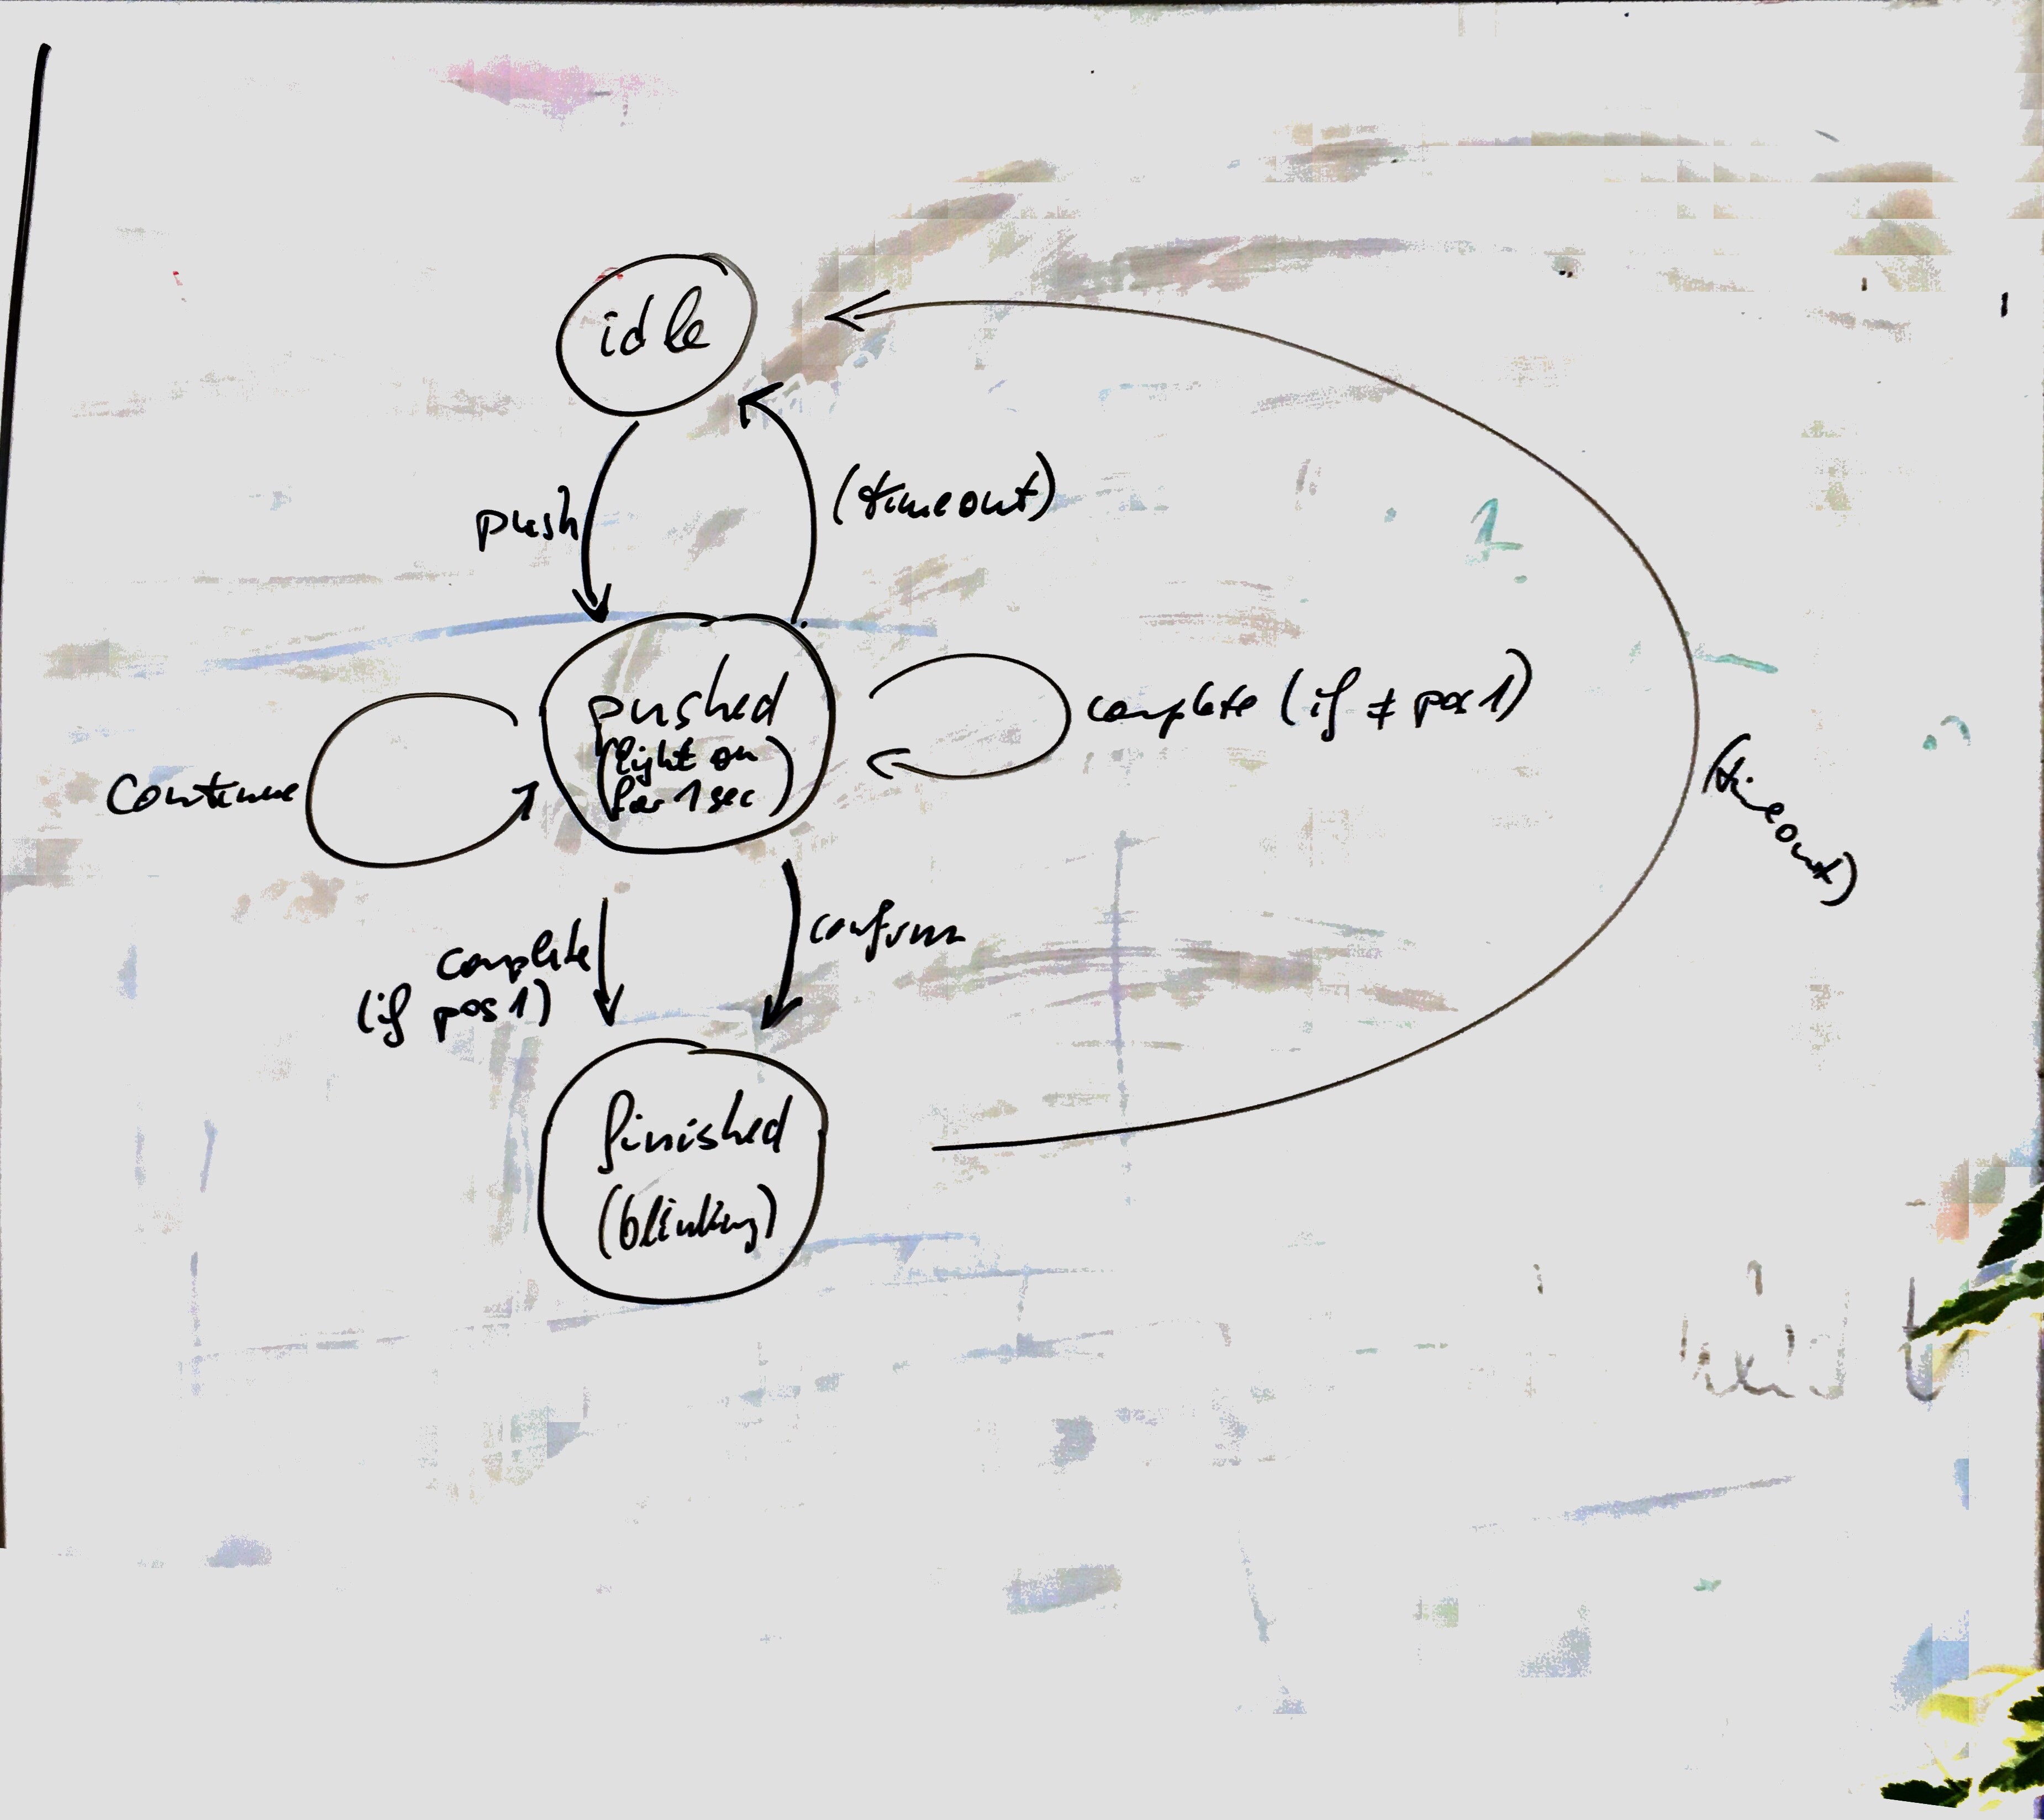 idle
push
(timeout)
pushed
(light on
for 1 sec)
complete (if ≠ pos 1)
continue
(timeout)
complete
(if pos 1)
confirm
finished
(blinking)
1